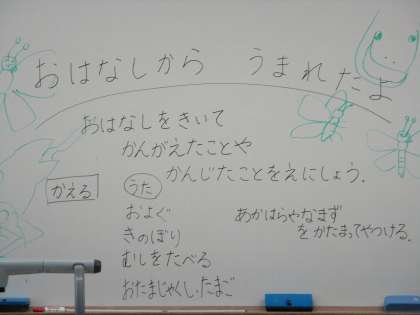 おはなしから うまれたよ
おはなしをきいて
かんがえたことや
かんじたことをえにしょう.
かえる うた
およぐ
きのぼり
むしをたべる
おたまじゃくし.たまご
あかはらやなまず
をかたまってやつける.